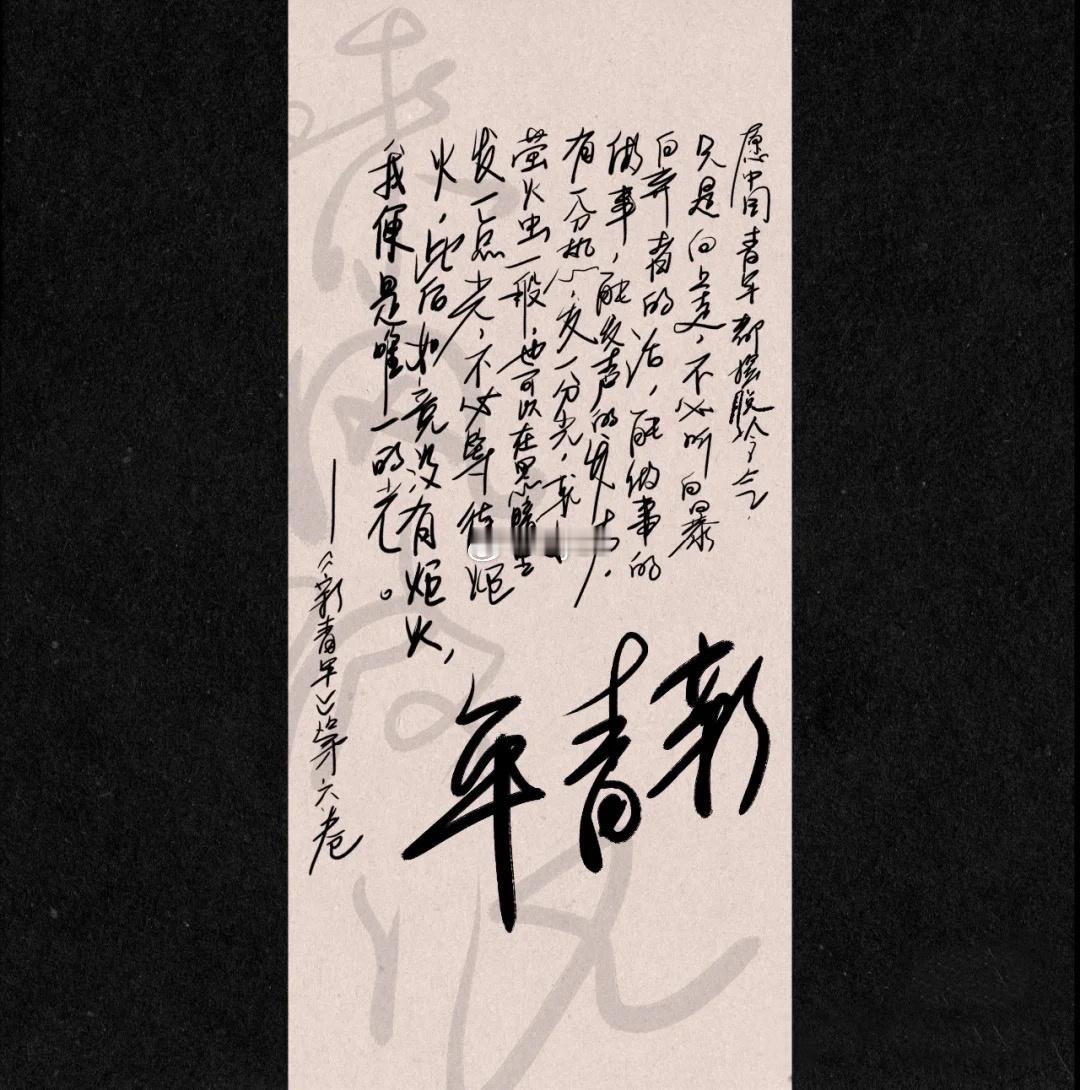 愿中国青年都摆脱冷气，
只是向上走，不必听自暴
自弃者的话，能做事的
做事，能发声的发声，
有一分热，发一分光，就
萤火虫一般，也可以在黑暗里
发一点光，不必等待炬
火，此后如竟没有炬火，
我便是唯一的光。
——《新青年》第六卷
新青年